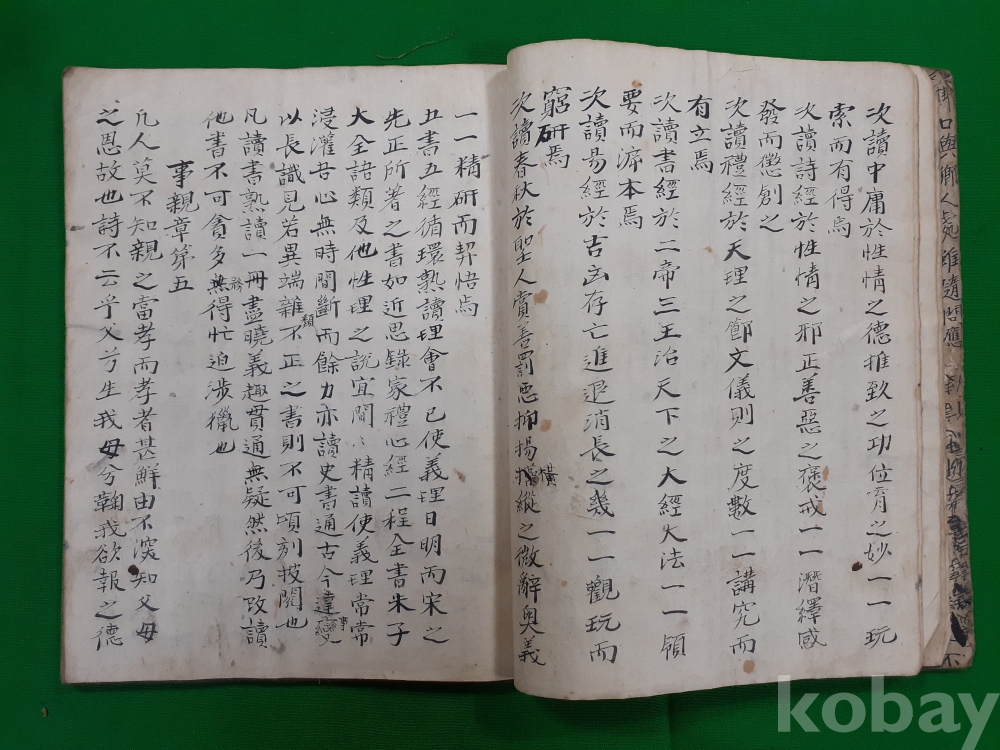 次讀中庸於性情之德推致之功位育之妙一一玩
索而有得焉
次讀詩經於性情之邪正善惡之褒戒一一潛繹感
發而懲創之
次讀禮經於天理之節文儀則之度數一一講究而
有立焉
次讀書經於二帝三王治天下之大經大法一一領
要而泝本焉
次讀易經於吉凶存亡進退消長之幾一一觀玩而
窮研焉
次讀春秋於聖人賞善罰惡抑揚縱之微辭奧義
橫
一一精研而契悟焉
五書五經循環熟讀理會不已使義理日明而宋之
先正所著之書如近思錄家禮心經二程全書朱子
大全語類及他性理之說宜間〻精讀使義理常常
浸灌吾心無時間斷而餘力亦讀史書通古今達變
事
以長識見若異端雜不正之書則不可頃刻披閱也
類
凡讀書熟讀一冊盡曉義趣貫通無疑然後乃改讀
他書不可貪多無得忙迫涉獵也
務
事親章第五
凡人莫不知親之當孝而孝者甚鮮由不深知父母
之恩故也詩不云乎父兮生我母兮鞠我欲報之德
kobay